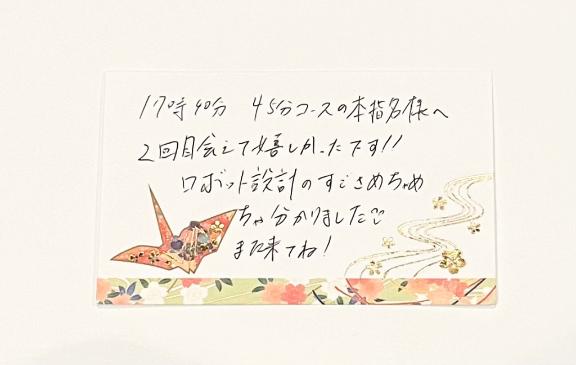 17時40分 45分コースの本指名様へ
2回目会えて嬉しかったです!!
ロボット設計のすごさめちゃめ
ちゃ分かりました♡
また来てね!